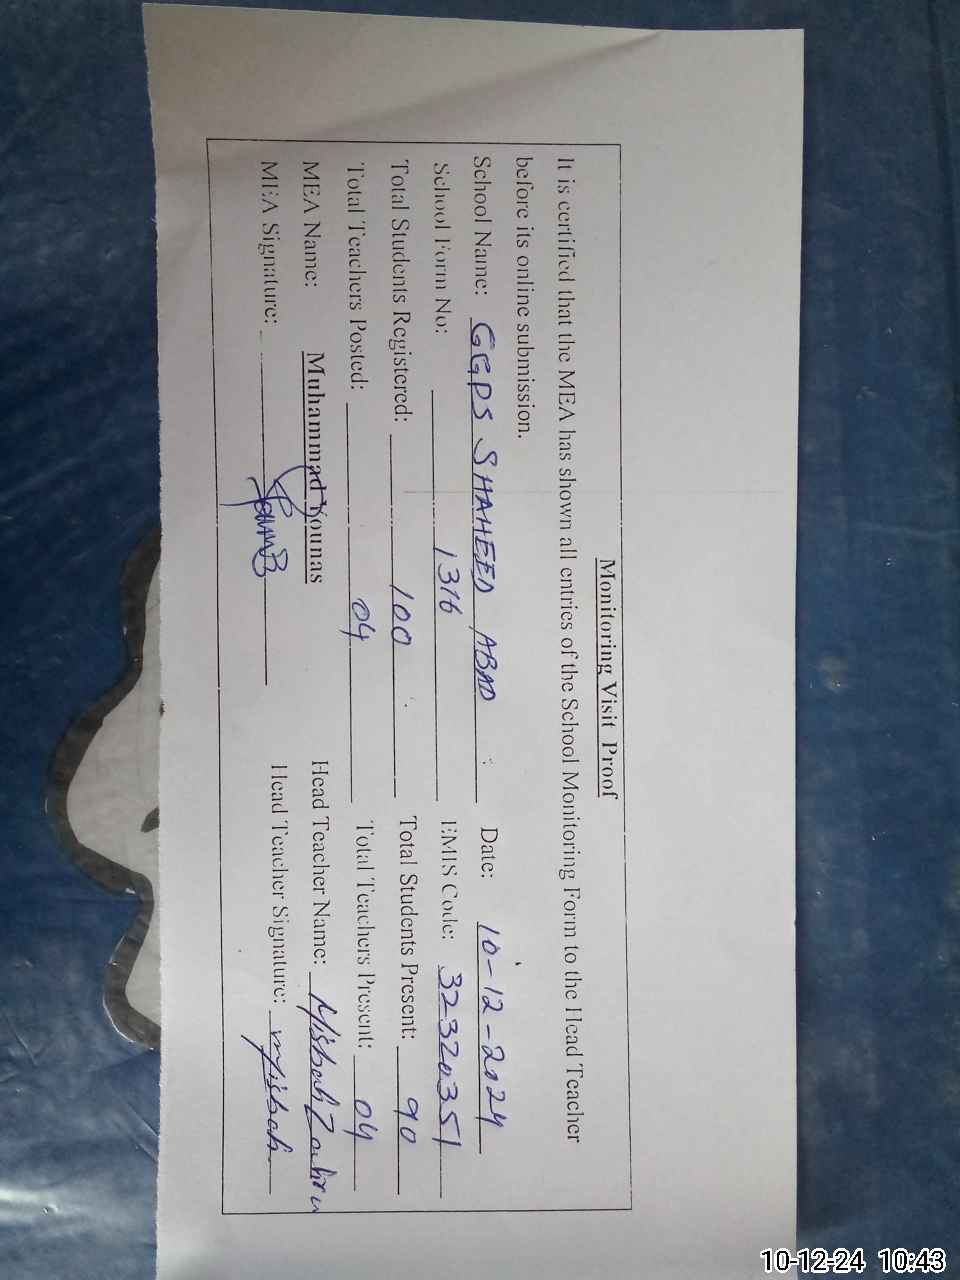 Monitoring Visit Proof
It is certified that the MEA has shown all entries of the School Monitoring Form to the Head Teacher
before its online submission.
School Name: GGPS SHAHEED ABAD Date: 10-12-2024
School Form No: 1316 EMIS Code: 32320351
Total Students Registered: 100 Total Students Present: 90
Total Teachers Posted: 04 Total Teachers Present: 04
MEA Name: Muhammad Younas Head Teacher Name: Misbah Zahra
MEA Signature: Head Teacher Signature: Misbah
10-12-24 10:43